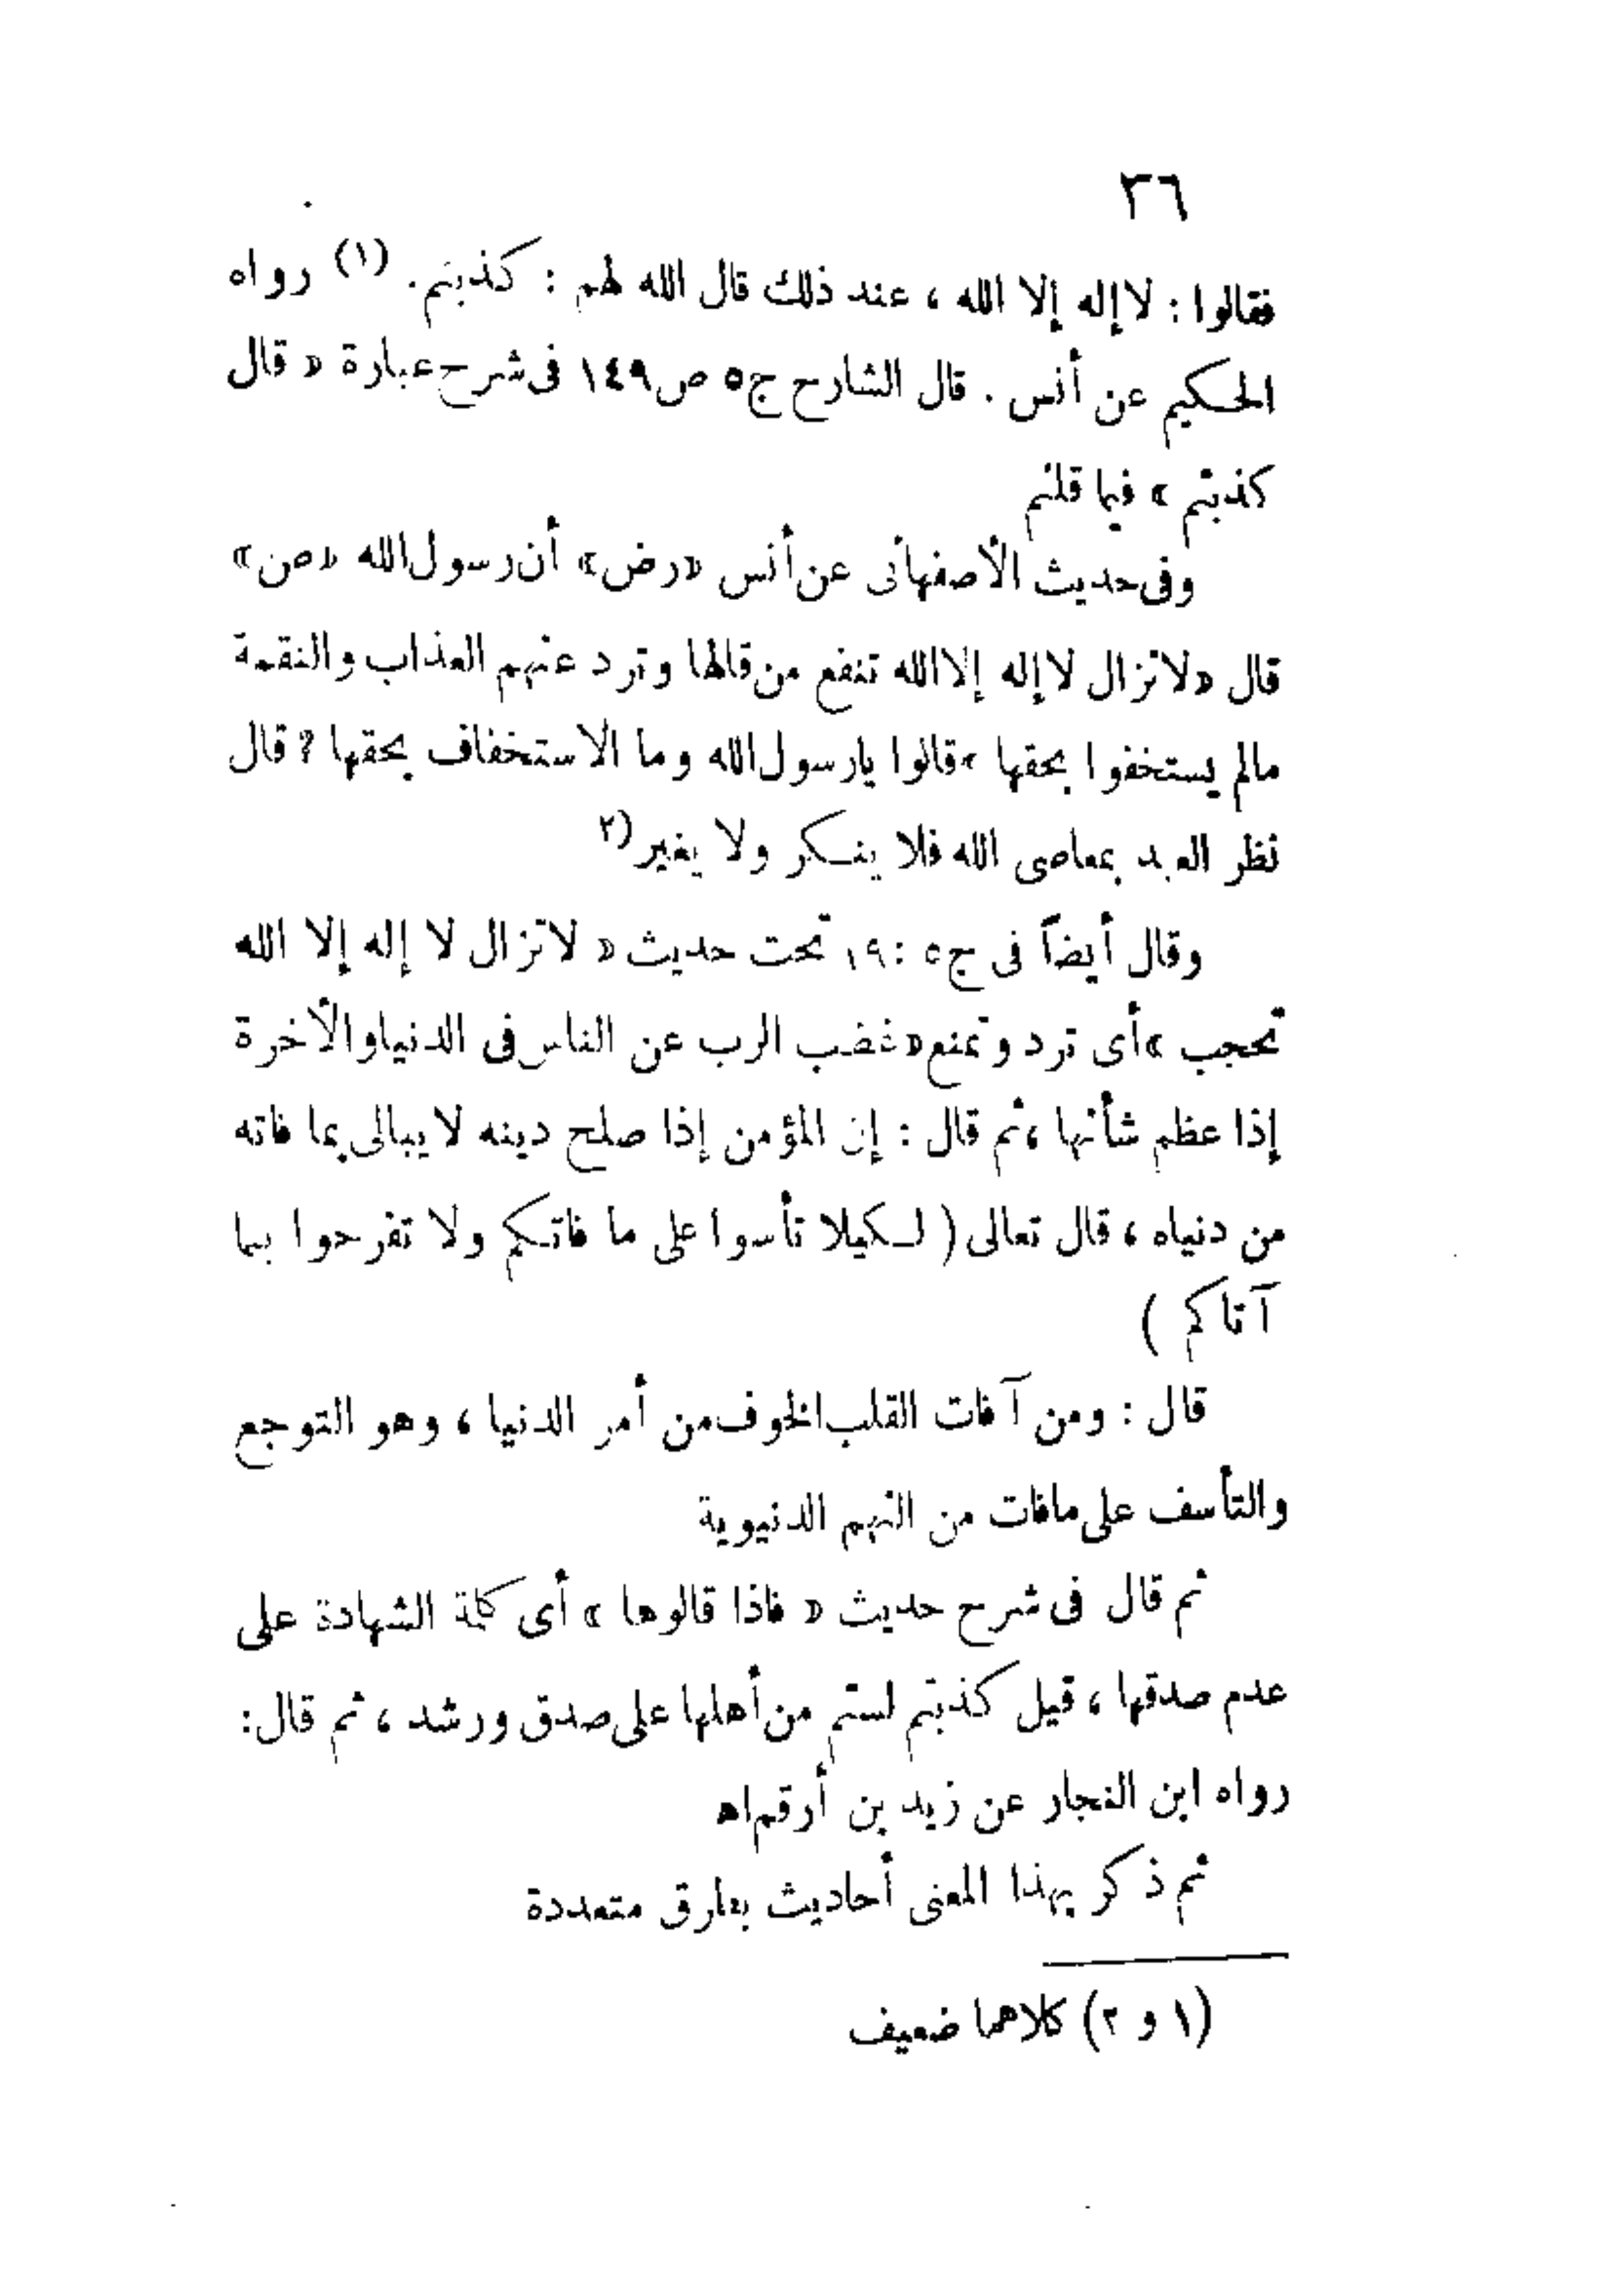 ٣٦
فقالوا : لا إله إلا الله ، عند ذلك قال الله لهم : كذبتم . (١) رواه
الحكيم عن أنس . قال الشارح ج٥ ص١٤٩ فى شرح عبارة « قال
كذبتم » فيما قلتم
وفى حديث الأصفهانى عن أنس «رض» أن رسول الله «ص»
قال « لا تزال لا إله إلا الله تنفع من قالها وترد عنهم العذاب والنقمة
مالم يستخفوا بحقها ، قالوا يارسول الله وما الاستخفاف بحقها ؟ قال
نظر العبد بمعاصى الله فلا ينكر ولا يغير (٢
وقال أيضاً فى ج٥ : ١٩ تحت حديث « لا تزال لا إله إلا الله
تحجب » أى ترد وتمنع « غضب الرب عن الناس فى الدنيا والأخرة
إذا عظم شأنها ، ثم قال : إن المؤمن إذا صلح دينه لا يبالى بما فاته
من دنياه ، قال تعالى ( لكيلا تأسوا على ما فاتكم ولا تفرحوا بما
آتاكم )
قال : ومن آفات القلب الخوف من أمر الدنيا ، وهو التوجع
والتأسف على مافات من النهم الدنيوية
ثم قال فى شرح حديث « فاذا قالوها » أى كلمة الشهادة على
عدم صدقها ، قيل كذبتم لستم من أهلها على صدق ورشد ، ثم قال :
رواه ابن النجار عن زيد بن أرقم اه
ثم ذكر بهذا المعنى أحاديث بطرق متعددة
(١ و ٢) كلاهما ضعيف